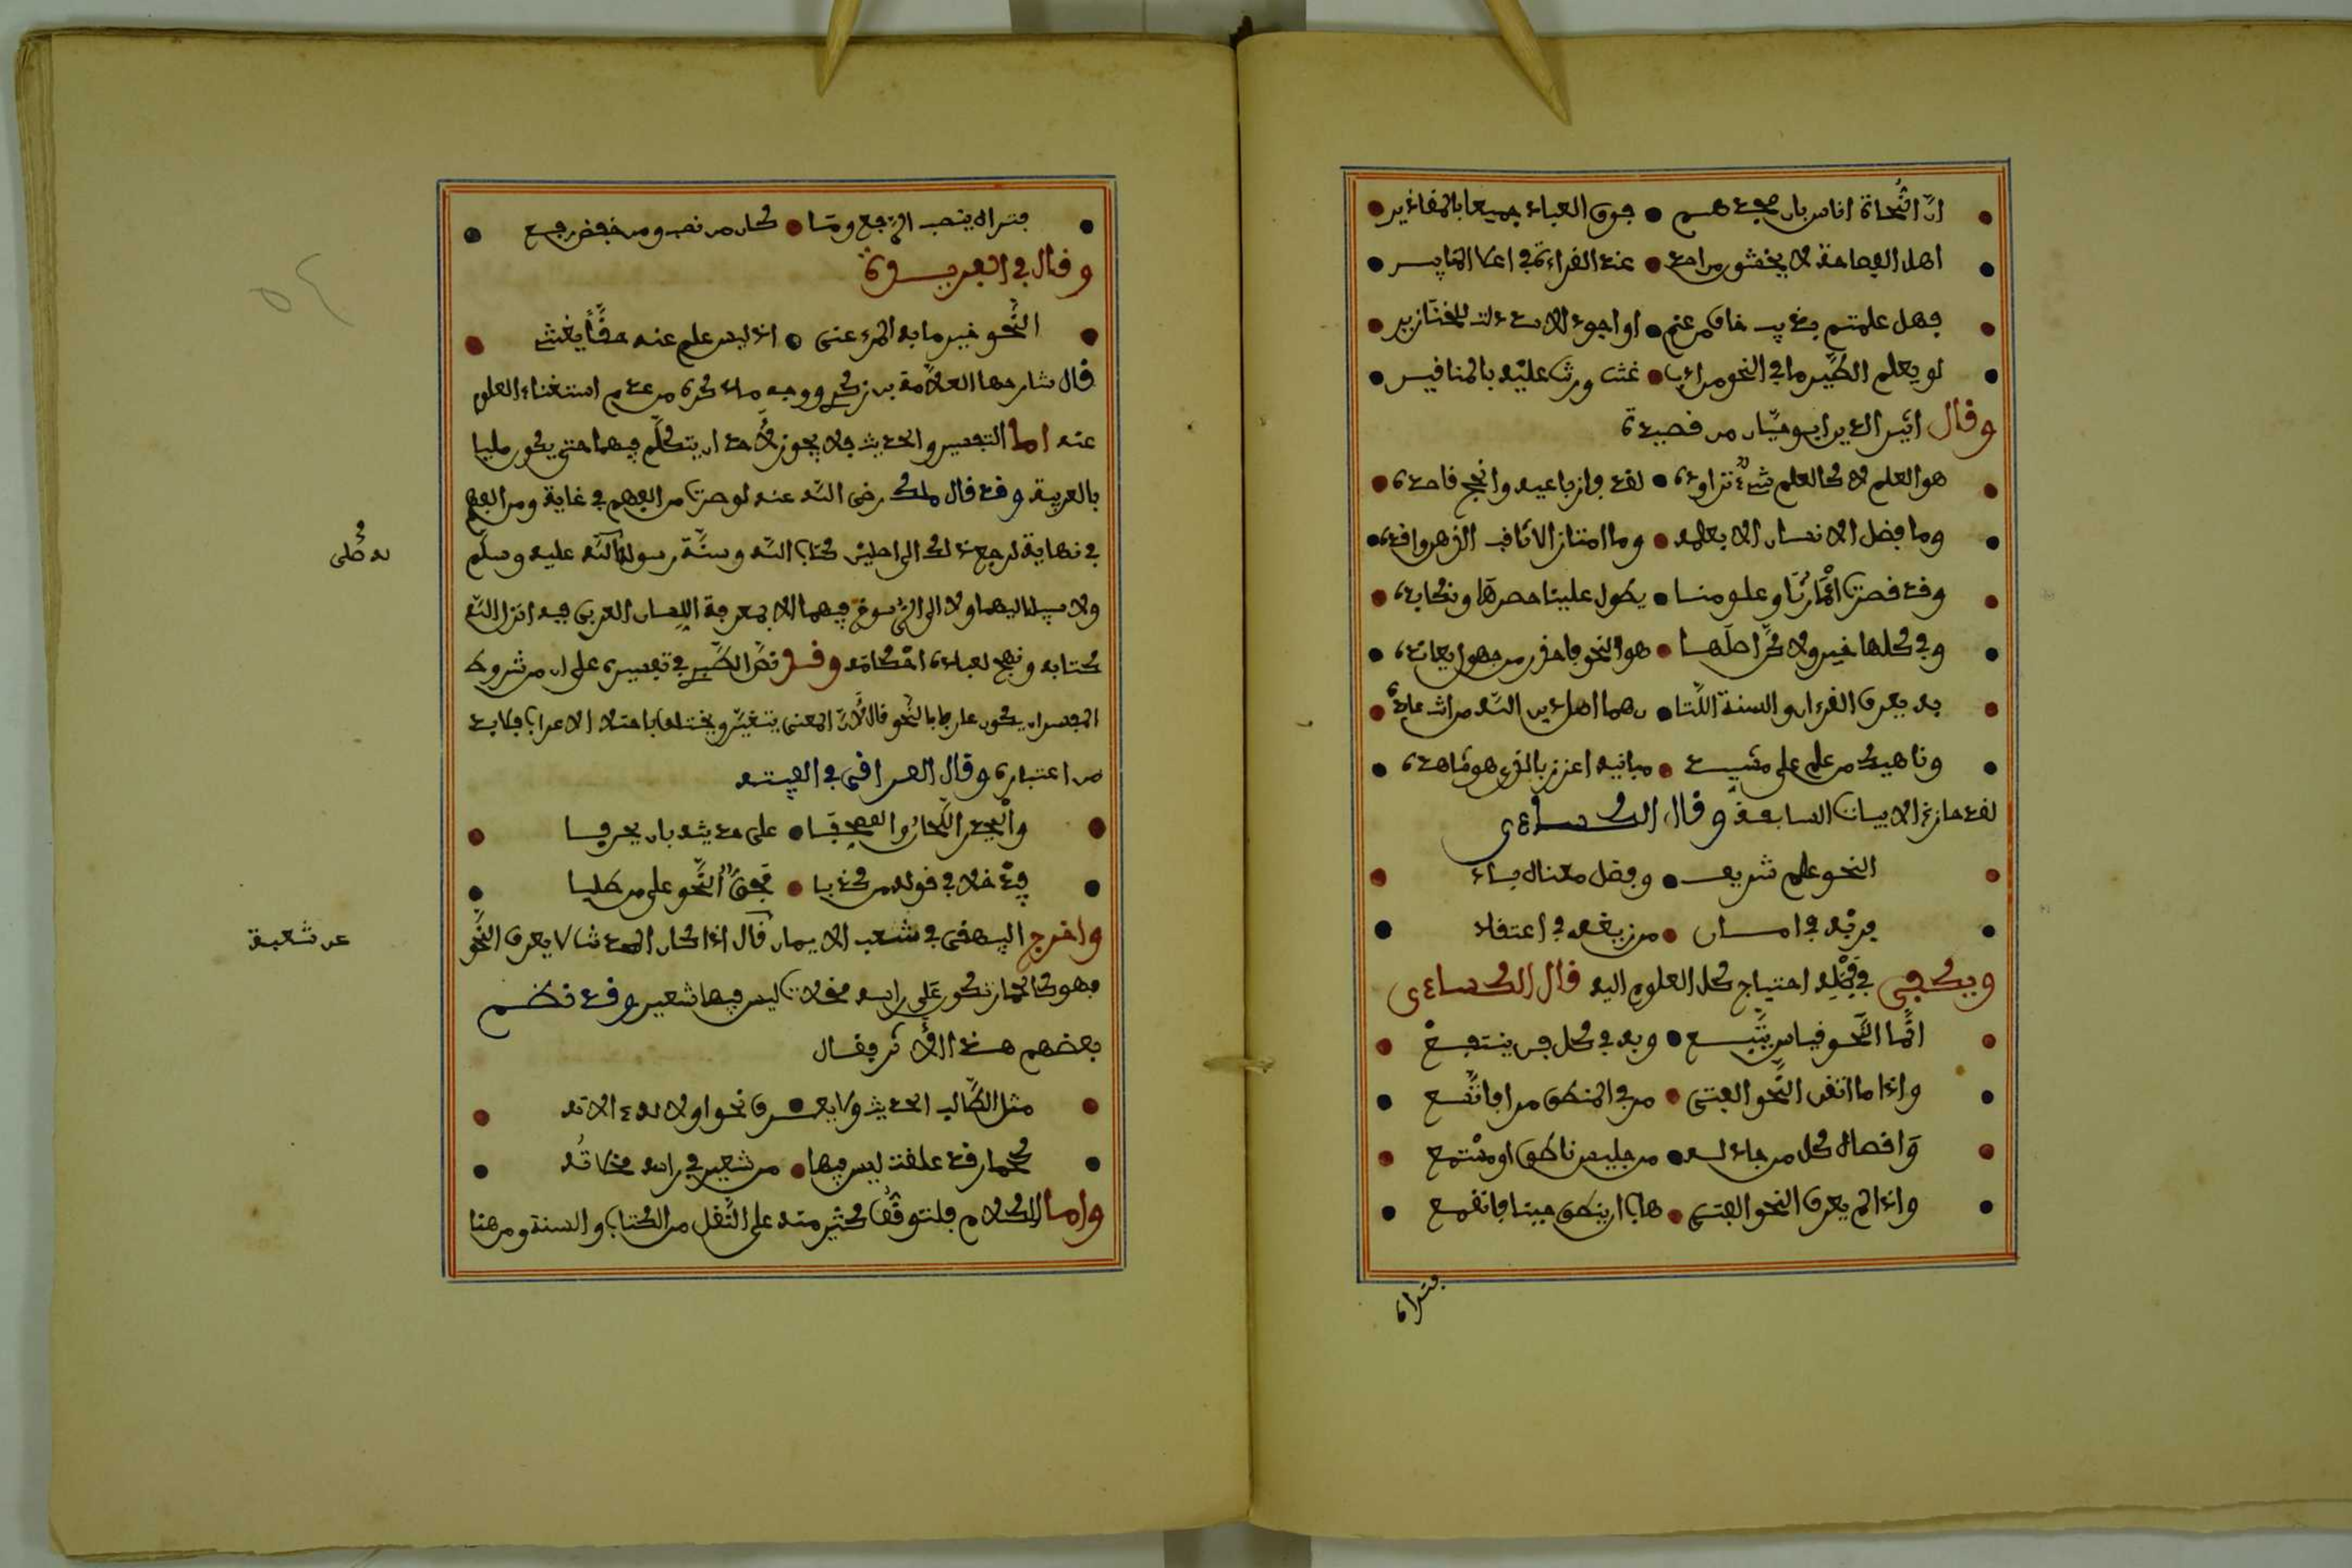 ان النحاة اناس بان مجدهم • فوق العباد جميعا بالمقادير
اهل الفصاحة لا يخشون من احد • عند القراءة في اعلا المنابر
فهل علمتم بذيب خاف من غنم • او اجود الاسد ذلت للخنازير
لو يعلم الطير ما في النحو من ادب • غنت ورنت عليه بالمناقير
وقال اثير الدين ابو حيان من قصيدة
هو العلم لا كالعلم شيء تراوده • لقد فاز باغيه وانجح قاصده
وما فضل الانسان الا بعلمه • وما امتاز الا ثاقب الذهن واقده
وقد قصرت اعمارنا وعلومنا • يطول علينا حصرها ونكابده
وفي كلها خير ولاكن اصلها • هو النحو فاحذر من جهول يعانده
به يعرف القرءان والسنة اللتا • ن هما اصل دين الله من انت عابده
وناهيك من علم علي مشيد • مبانيه اعزز بالذي هو شاهده
لقد حاز الابيات السابقة وقال الكساءي
النحو علم شريف • وفضل معناه باد
في امان • من زيغه في اعتقاد
ويكفي في فضله احتياج كل العلوم اليه قال الكساءي
انما النحو قياس يتبع • وبه في كل فن ينتفع
واذا ما اتقن النحو الفتى • مر في المنطق مرا فاتسع
واتقاه كل من جالسه • من جليس ناطق او مستمع
واذا لم يعرف النحو الفتى • هاب ان ينطق جبنا فانقمع
فتراه
فتراه ينصب الرفع وما • كان من نصب ومن خفض رفع
وقال في الفريدة
النحو خير ما به المرء عني • اذ ليس علم عنه حقا يغتني
قال شارحها العلامة بن زكري ووجه ما ذكره من عدم استغناء العلوم
عنه اما التفسير والحديث فلا يجوز لاحد ان يتكلم فيهما حتى يكون مليا
بالعربية وقد قال ملك رضى الله عنه لو صرت من الفهم في غاية ومن العلم
في نهاية لرجع ذلك الى اصلين كتاب الله وسنة رسول الله عليه وسلم
ولا سبيل اليهما ولا الى الرسوخ فيهما الا بمعرفة اللسان العربي فبه انزل الله
كتابه ونهج لعباده احكامه وقد نص الطبري في تفسيره على ان من شروط
المفسر ان يكون عارفا بالنحو قال لان المعنى يتغير ويختلف باختلاف الاعراب فلا بد
من اعتباره وقال العراقي في الفيته
وليحذر اللحان والمصحفا • على حديثه بان يحرفا
فيدخلا في قوله من كذبا • فحق النحو على من طلبا
واخرج البيهقي في شعب الايمان قال اذا كان المحدث لا يعرف النحو
فهو كالحمار تكون على راسه مخلات ليس فيها شعير وقد نظم
بعضهم هذا الاثر فقال
مثل الطالب الحديث ولا يعرف نحوا ولا له ءالاته
كحمار قد علقت ليس فيها • من شعير في راسه مخلاته
واما الكلام فلتوقف كثير منه على النقل من الكتاب والسنة ومن هنا
عن شعبة